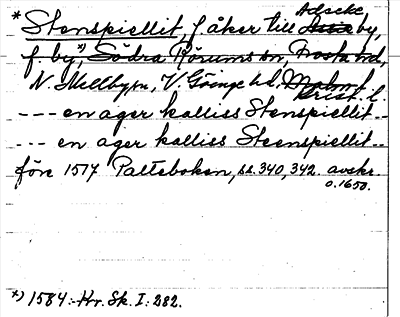 Adseke
* Stenspiellit, f åker till by,
f. by,*) Södra Rörums sn, Frosta hd,
N. Mellby sn, V. Göinge hd. Malm. l.
Krist. l.
--- en ager kalliss Stenspiellit..
--- en ager kalliss Steenspiellit..
före 1517 Palteboken, ss. 340, 342. avskr.
o. 1650.
*) 1584:- Hr. Sk. I: 282.